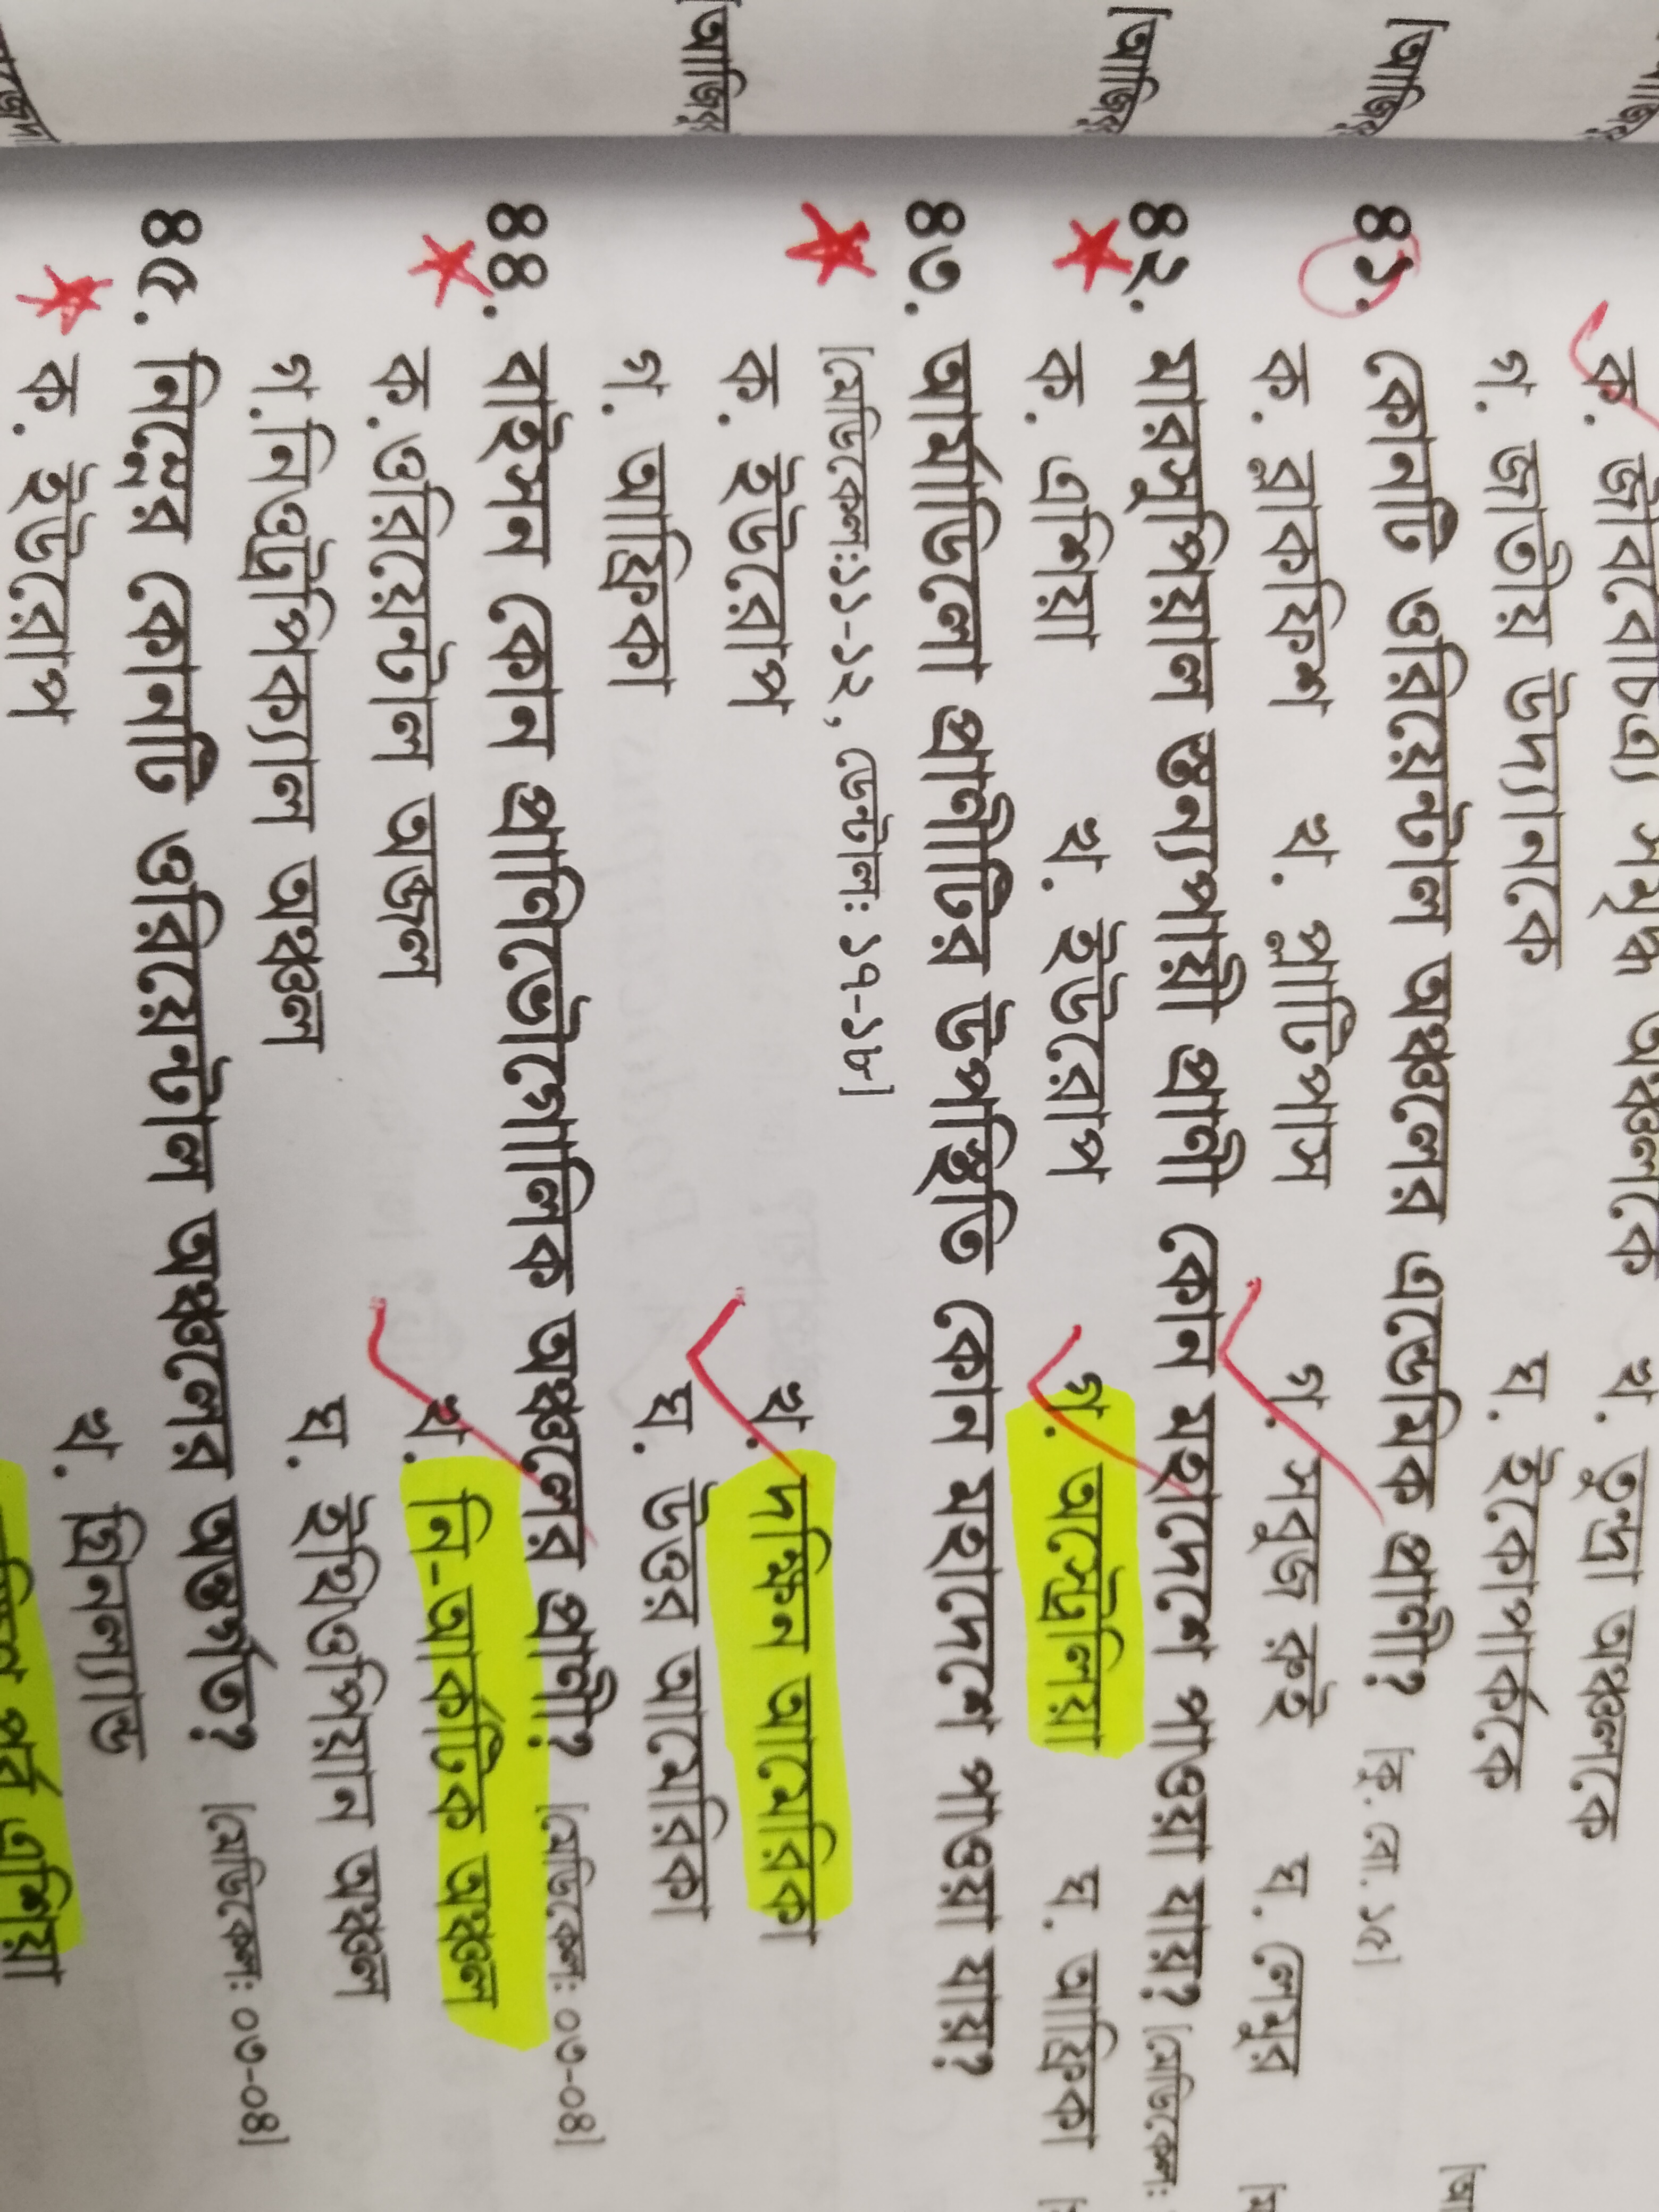 [আজিবুর
[আজিবুর
[আজিবুর
ক. জীববৈচিত্র্য সমৃদ্ধ অঞ্চলকে খ. তুন্দ্রা অঞ্চলকে
গ. জাতীয় উদ্যানকে ঘ. ইকোপার্ককে
৪১. কোনটি ওরিয়েন্টাল অঞ্চলের এন্ডেমিক প্রাণী? [কু. বো. ১৫]
ক. ব্লাকফিশ খ. প্লাটিপাস গ. সবুজ রুই ঘ. লেমুর
৪২. মারসুপিয়াল স্তন্যপায়ী প্রাণী কোন মহাদেশে পাওয়া যায়? [মেডিকেল:
ক. এশিয়া খ. ইউরোপ গ. অস্ট্রেলিয়া ঘ. আফ্রিকা
৪৩. আর্মাডিলো প্রাণীটির উপস্থিতি কোন মহাদেশে পাওয়া যায়?
[মেডিকেল:১১-১২, ডেন্টাল: ১৭-১৮]
ক. ইউরোপ খ. দক্ষিন আমেরিকা
গ. আফ্রিকা ঘ. উত্তর আমেরিকা
৪৪. বাইসন কোন প্রানিভৌগোলিক অঞ্চলের প্রাণী? [মেডিকেল: ০৩-০৪]
ক.ওরিয়েন্টাল অঞ্জল খ. নি-আর্কটিক অঞ্চল
গ.নিওট্রপিক্যাল অঞ্চল ঘ. ইথিওপিয়ান অঞ্চল
৪৫. নিম্নের কোনটি ওরিয়েন্টাল অঞ্চলের অন্তর্গত? [মেডিকেল: ০৩-০৪]
ক. ইউরোপ খ. গ্রিনল্যান্ড
পূর্ব এশিয়া